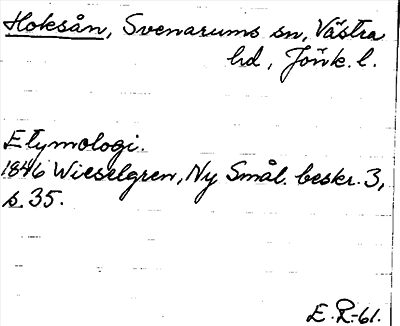 Hoksån, Svenarums sn, Västra
hd, Jönk. l.
Etymologi.
1846 Wieselgren, Ny Smål. beskr. 3,
s. 35.
E. R-61.